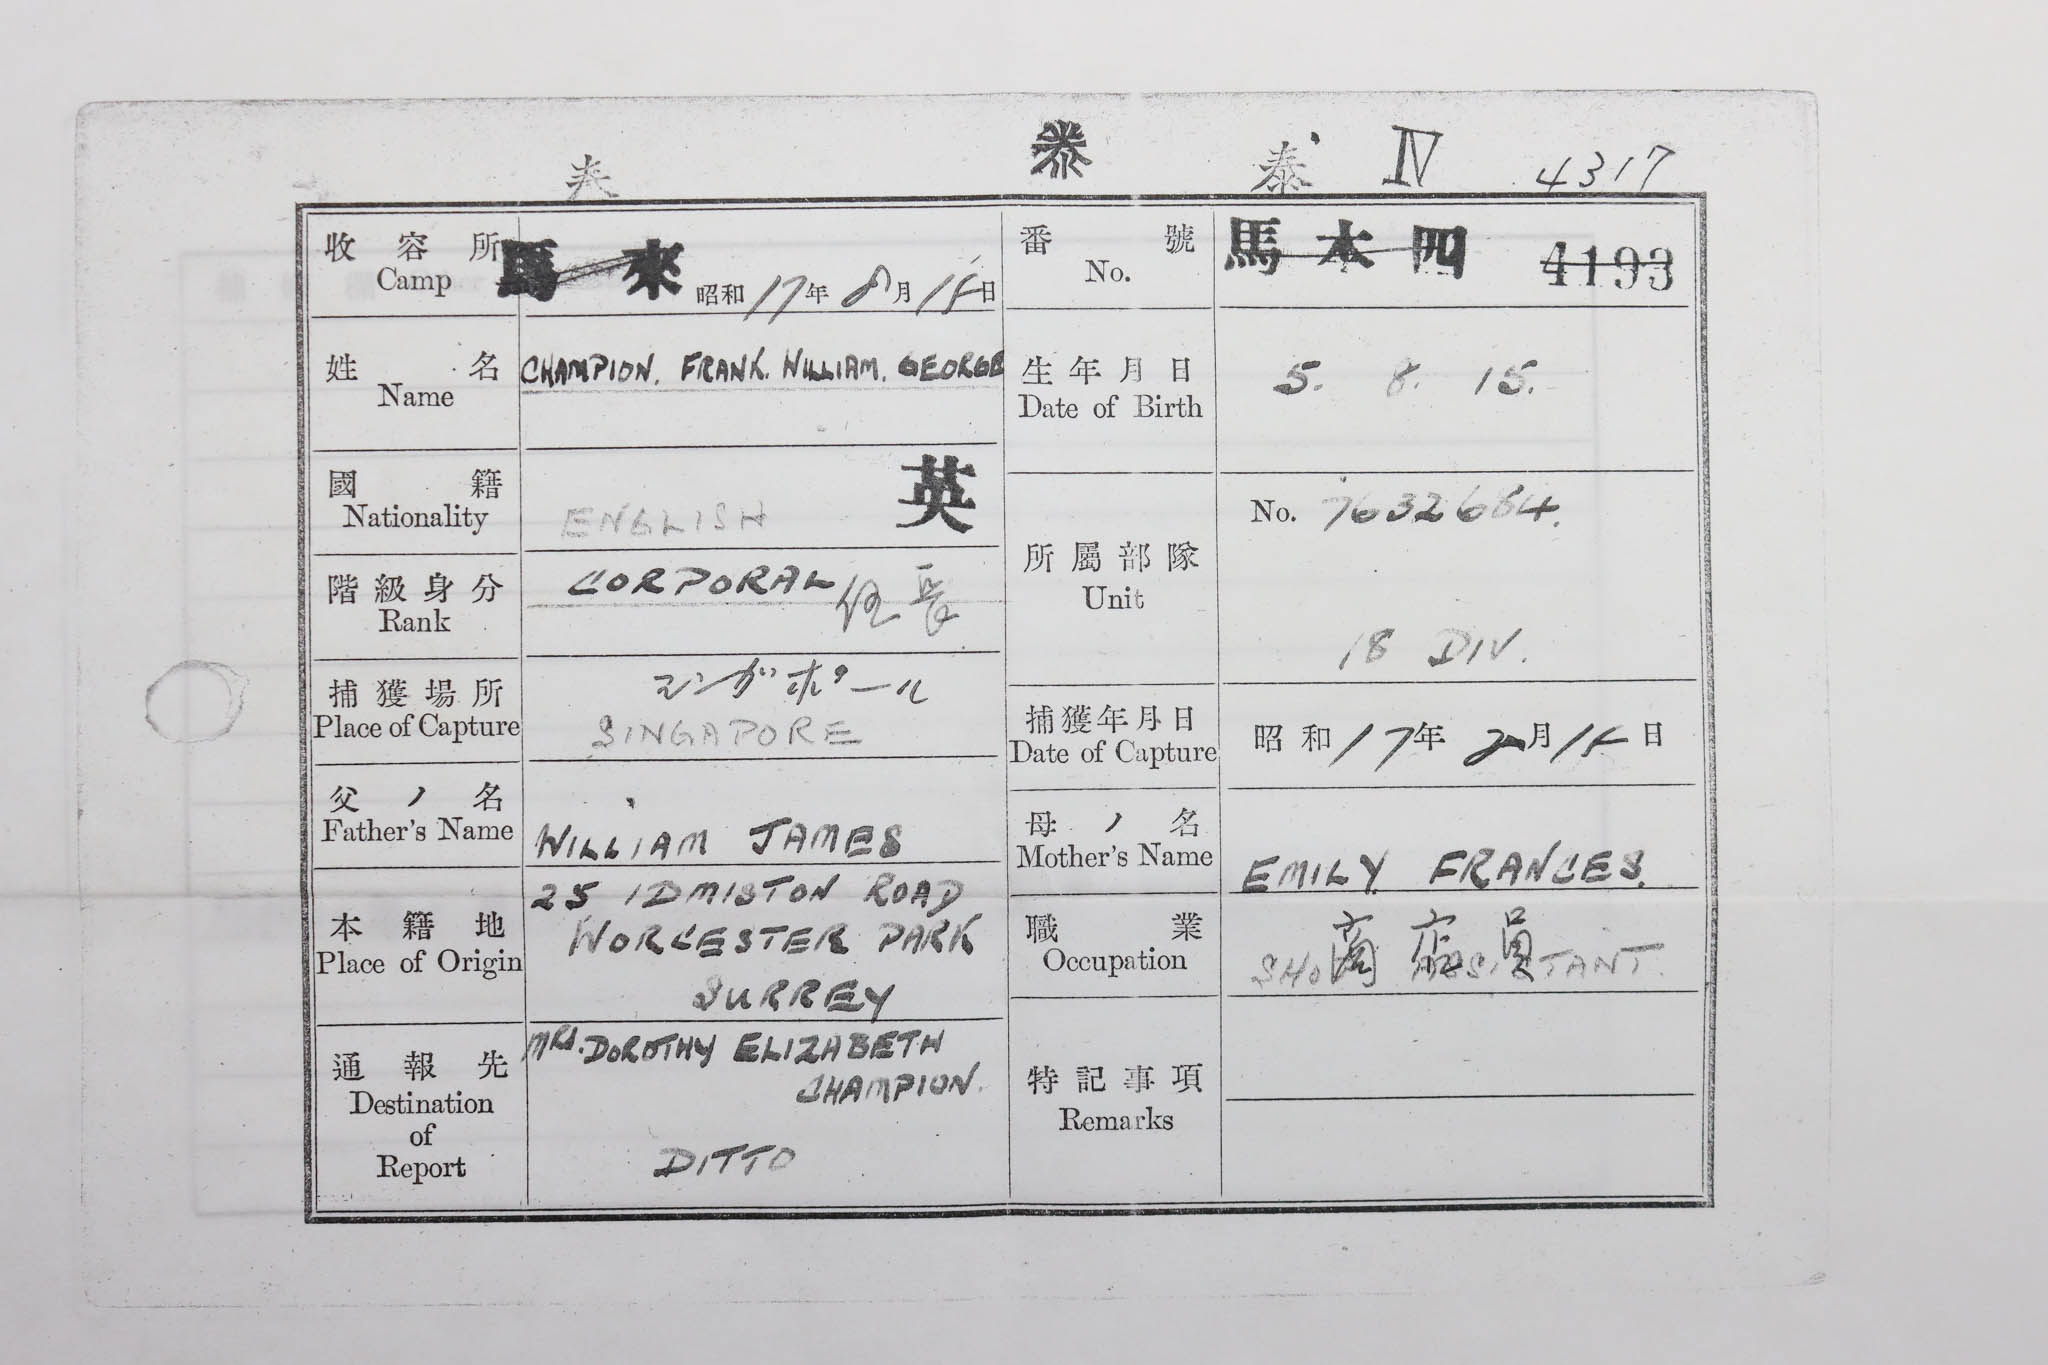 泰 泰 Ⅳ 4317
收容所
Camp
馬来 昭和17年8月15日
番號
No.
馬来四 4193
姓名
Name
CHAMPION. FRANK. WILLIAM. GEORGE
生年月日
Date of Birth
5. 8. 15.
國籍
Nationality
ENGLISH 英
階級身分
Rank
CORPORAL 伍長
所屬部隊
Unit
No. 7632684.
18 DIV.
捕獲場所
Place of Capture
シンガポール
SINGAPORE
捕獲年月日
Date of Capture
昭和17年2月15日
父ノ名
Father's Name
WILLIAM JAMES
母ノ名
Mother's Name
EMILY FRANCES.
本籍地
Place of Origin
25 IDMISTON ROAD
WORCESTER PARK
SURREY
職業
Occupation
商店員
SHOP ASSISTANT.
通報先
Destination
of
Report
MRS. DOROTHY ELIZABETH
CHAMPION.
DITTO
特記事項
Remarks